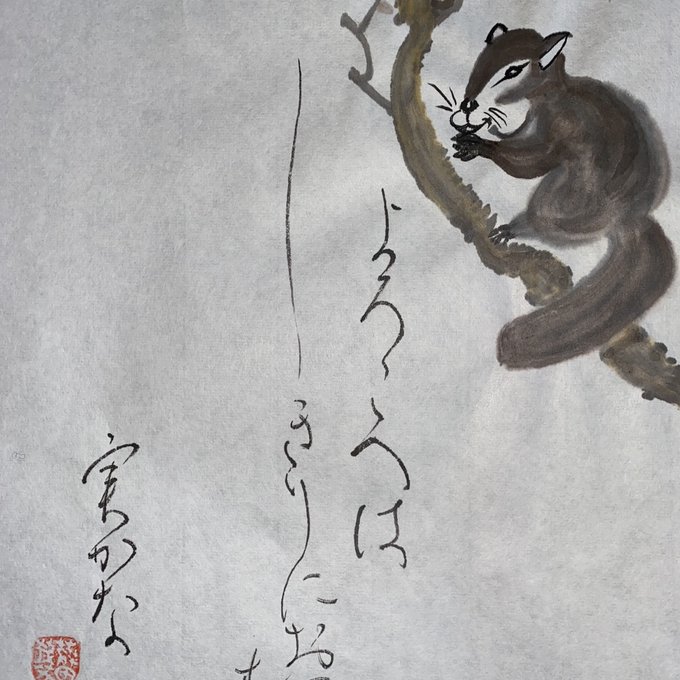 よろこへは
しきりにお
実かな